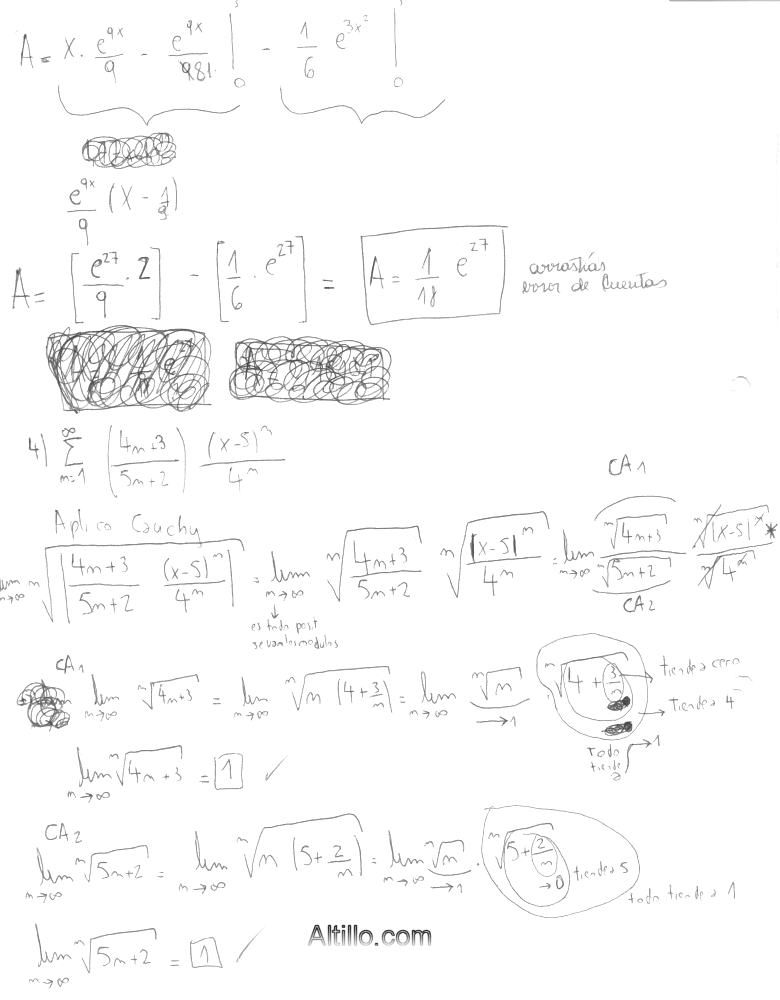 A = x · e^{9x}/9 - e^{9x}/81 |_0^3 - 1/6 e^{3x²} |_0^3
e^{9x}/9 (x - 1/9)
A = [e^{27}/9 · 2] - [1/6 · e^{27}] = A = 1/18 e^{27} arrastrás
error de Cuentas
4) ∑_{n=1}^{∞} (4n+3 / 5n+2) (x-5)^n / 4^n
CA1
Aplico Cauchy
lim_{n→∞} ⁿ√|4n+3 / 5n+2 (x-5)^n / 4^n| = lim_{n→∞} ⁿ√(4n+3 / 5n+2) ⁿ√(|x-5|^n / 4^n) = lim_{n→∞} ⁿ√(4n+3) / ⁿ√(5n+2) ⁿ√(|x-5|^n) / ⁿ√(4^n) *
CA2
↓
es todo posit
se van los modulos
CA1
lim_{n→∞} ⁿ√(4n+3) = lim_{n→∞} ⁿ√(n (4+3/n)) = lim_{n→∞} ⁿ√n →1 ⁿ√(4+3/n) → tiende a cero
→ tiende a 4
todo tiende a → 1
lim_{n→∞} ⁿ√(4n+3) = 1 ✓
CA2
lim_{n→∞} ⁿ√(5n+2) = lim_{n→∞} ⁿ√(n (5+2/n)) = lim_{n→∞} ⁿ√n →1 · ⁿ√(5+2/n) →0 tiende a 5
todo tiende a 1
lim_{n→∞} ⁿ√(5n+2) = 1 ✓
Altillo.com